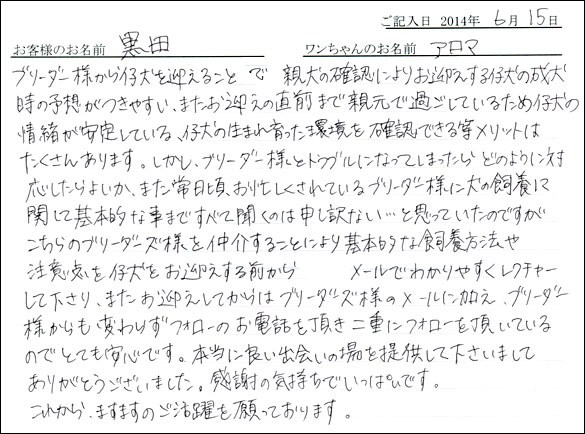 ご記入日 2014年 6月 15日
お客様のお名前 黒田 ワンちゃんのお名前 アロマ
ブリーダー様から仔犬を迎えること で 親犬の確認によりお迎えする仔犬の成犬
時の予想がつきやすい、またお迎えの直前まで親元で過ごしているため仔犬の
情緒が安定している、仔犬の生まれ育った環境を確認できる等メリットは
たくさんあります。しかし、ブリーダー様とトラブルになってしまったらどのように対
応したらよいか、また常日頃、お忙しくされているブリーダー様に犬の飼養に
関して基本的な事まですべて聞くのは申し訳ない…と思っていたのですが
こちらのブリーダーズ様を仲介することにより基本的な飼養方法や
注意点を仔犬をお迎えする前から メールでわかりやすくレクチャー
して下さり、またお迎えしてからはブリーダーズ様のメールに加え、ブリーダー
様からも変わらずフォローのお電話を頂き二重にフォローを頂いている
のでとても安心です。本当に良い出会いの場を提供して下さいまして
ありがとうございました。感謝の気持ちでいっぱいです。
これから、ますますのご活躍を願っております。